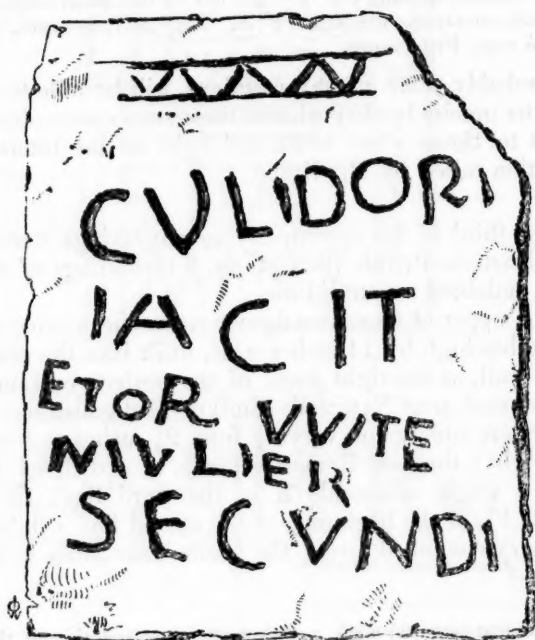 CVLIDORI
IACIT
ETOR VVITE
MVLIERI
SECVNDI